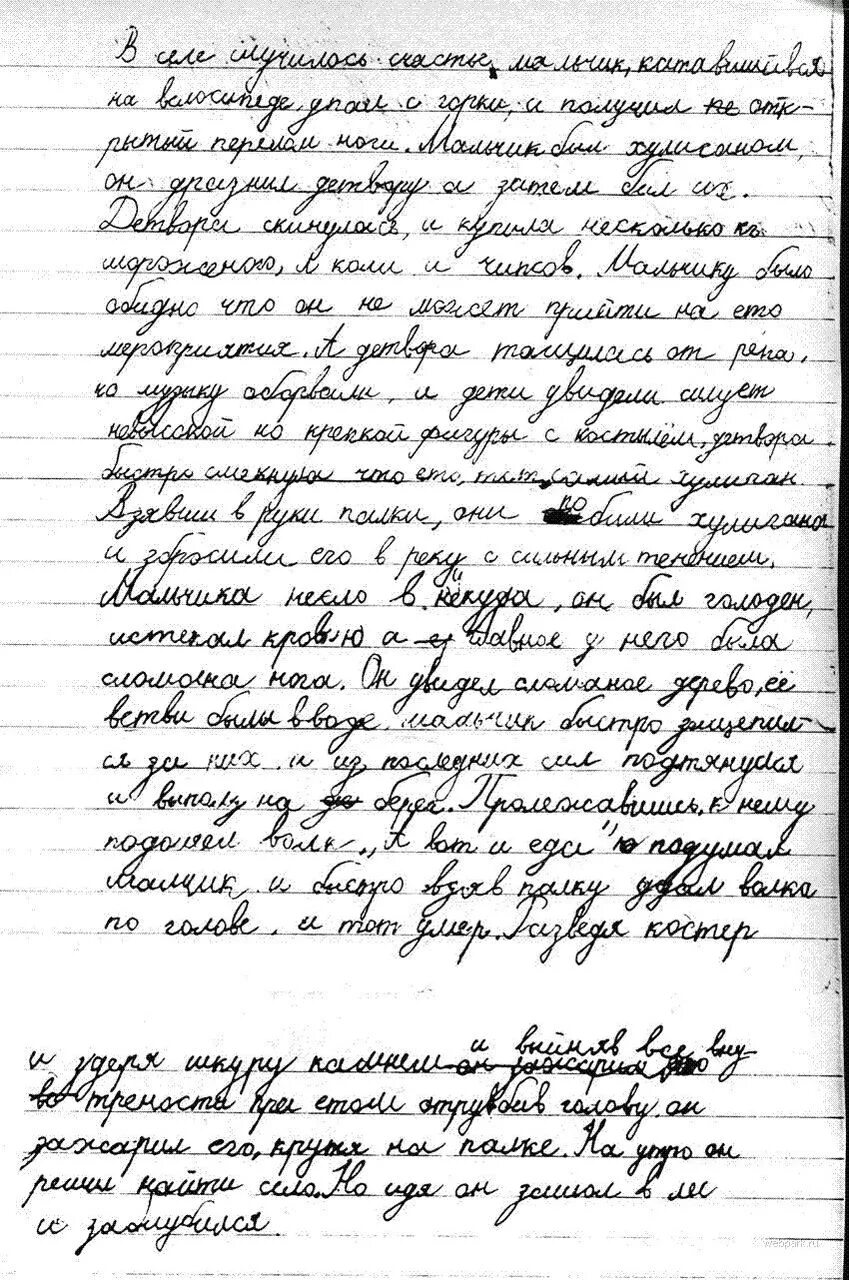 В селе случилось счастье, мальчик, катавшийвся
на велосипеде упал с горки, и получил не отк-
рытый перелом ноги. Мальчик был хулисаном,
он дразнил детвору а затем бил их.
Детвора скинулась, и купила несколько кг
мороженого, л колы и чипсов. Мальчику было
обидно что он не может прийти на ето
мероприятия. А детвора тащилась от репа,
но музыку оборвали, и дети увидели силует
невысокой но крепкой фигуры с костылём, детвора
быстро смекнула что ето, тот самый хулиган.
Взявши в руки палки, они побили хулигана
и збросили его в реку с сильным течением.
Мальчика несло в некуда, он был голоден,
истекал кровью а главное у него была
сломана нога. Он увидел сломаное дерево, её
ветви были в воде мальчик быстро зацепил-
ся за них и из последних сил подтянулся
и выполз на берег. Пролежавшись, к нему
подошел волк „А вот и еда" подумал
малчик и быстро вдяв палку удал волка
по голове, и тот умер. Разведя костер
и здеря шкуру камнем и выйняв все вну-
трености при етом отрубив голову он
зажарил его, крутя на палке. На утро он
решил найти село. Но идя он зашол в лес
и заблубился.
webpark.ru